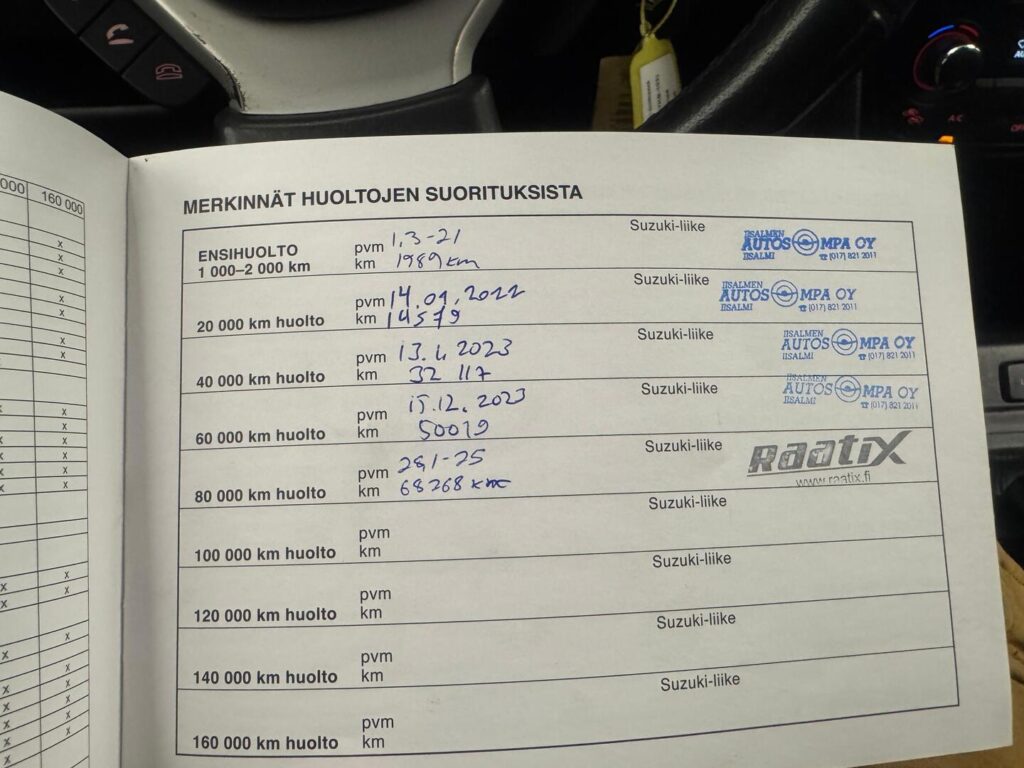 000 160 000
MERKINNÄT HUOLTOJEN SUORITUKSISTA
ENSIHUOLTO
1 000–2 000 km
pvm 1.3-21
km 1989 km
Suzuki-liike
IISALMEN
AUTOS MPA OY
IISALMI ☎ (017) 821 2011
20 000 km huolto
pvm 14.01.2022
km 14579
Suzuki-liike
IISALMEN
AUTOS MPA OY
IISALMI ☎ (017) 821 2011
40 000 km huolto
pvm 13.4.2023
km 32 117
Suzuki-liike
IISALMEN
AUTOS MPA OY
IISALMI ☎ (017) 821 2011
60 000 km huolto
pvm 15.12.2023
km 50019
Suzuki-liike
IISALMEN
AUTOS MPA OY
IISALMI ☎ (017) 821 2011
80 000 km huolto
pvm 28,1-25
km 68268 km
Suzuki-liike
RaatiX
www.raatix.fi
100 000 km huolto
pvm
km
Suzuki-liike
120 000 km huolto
pvm
km
Suzuki-liike
140 000 km huolto
pvm
km
Suzuki-liike
160 000 km huolto
pvm
km
Suzuki-liike
A/C